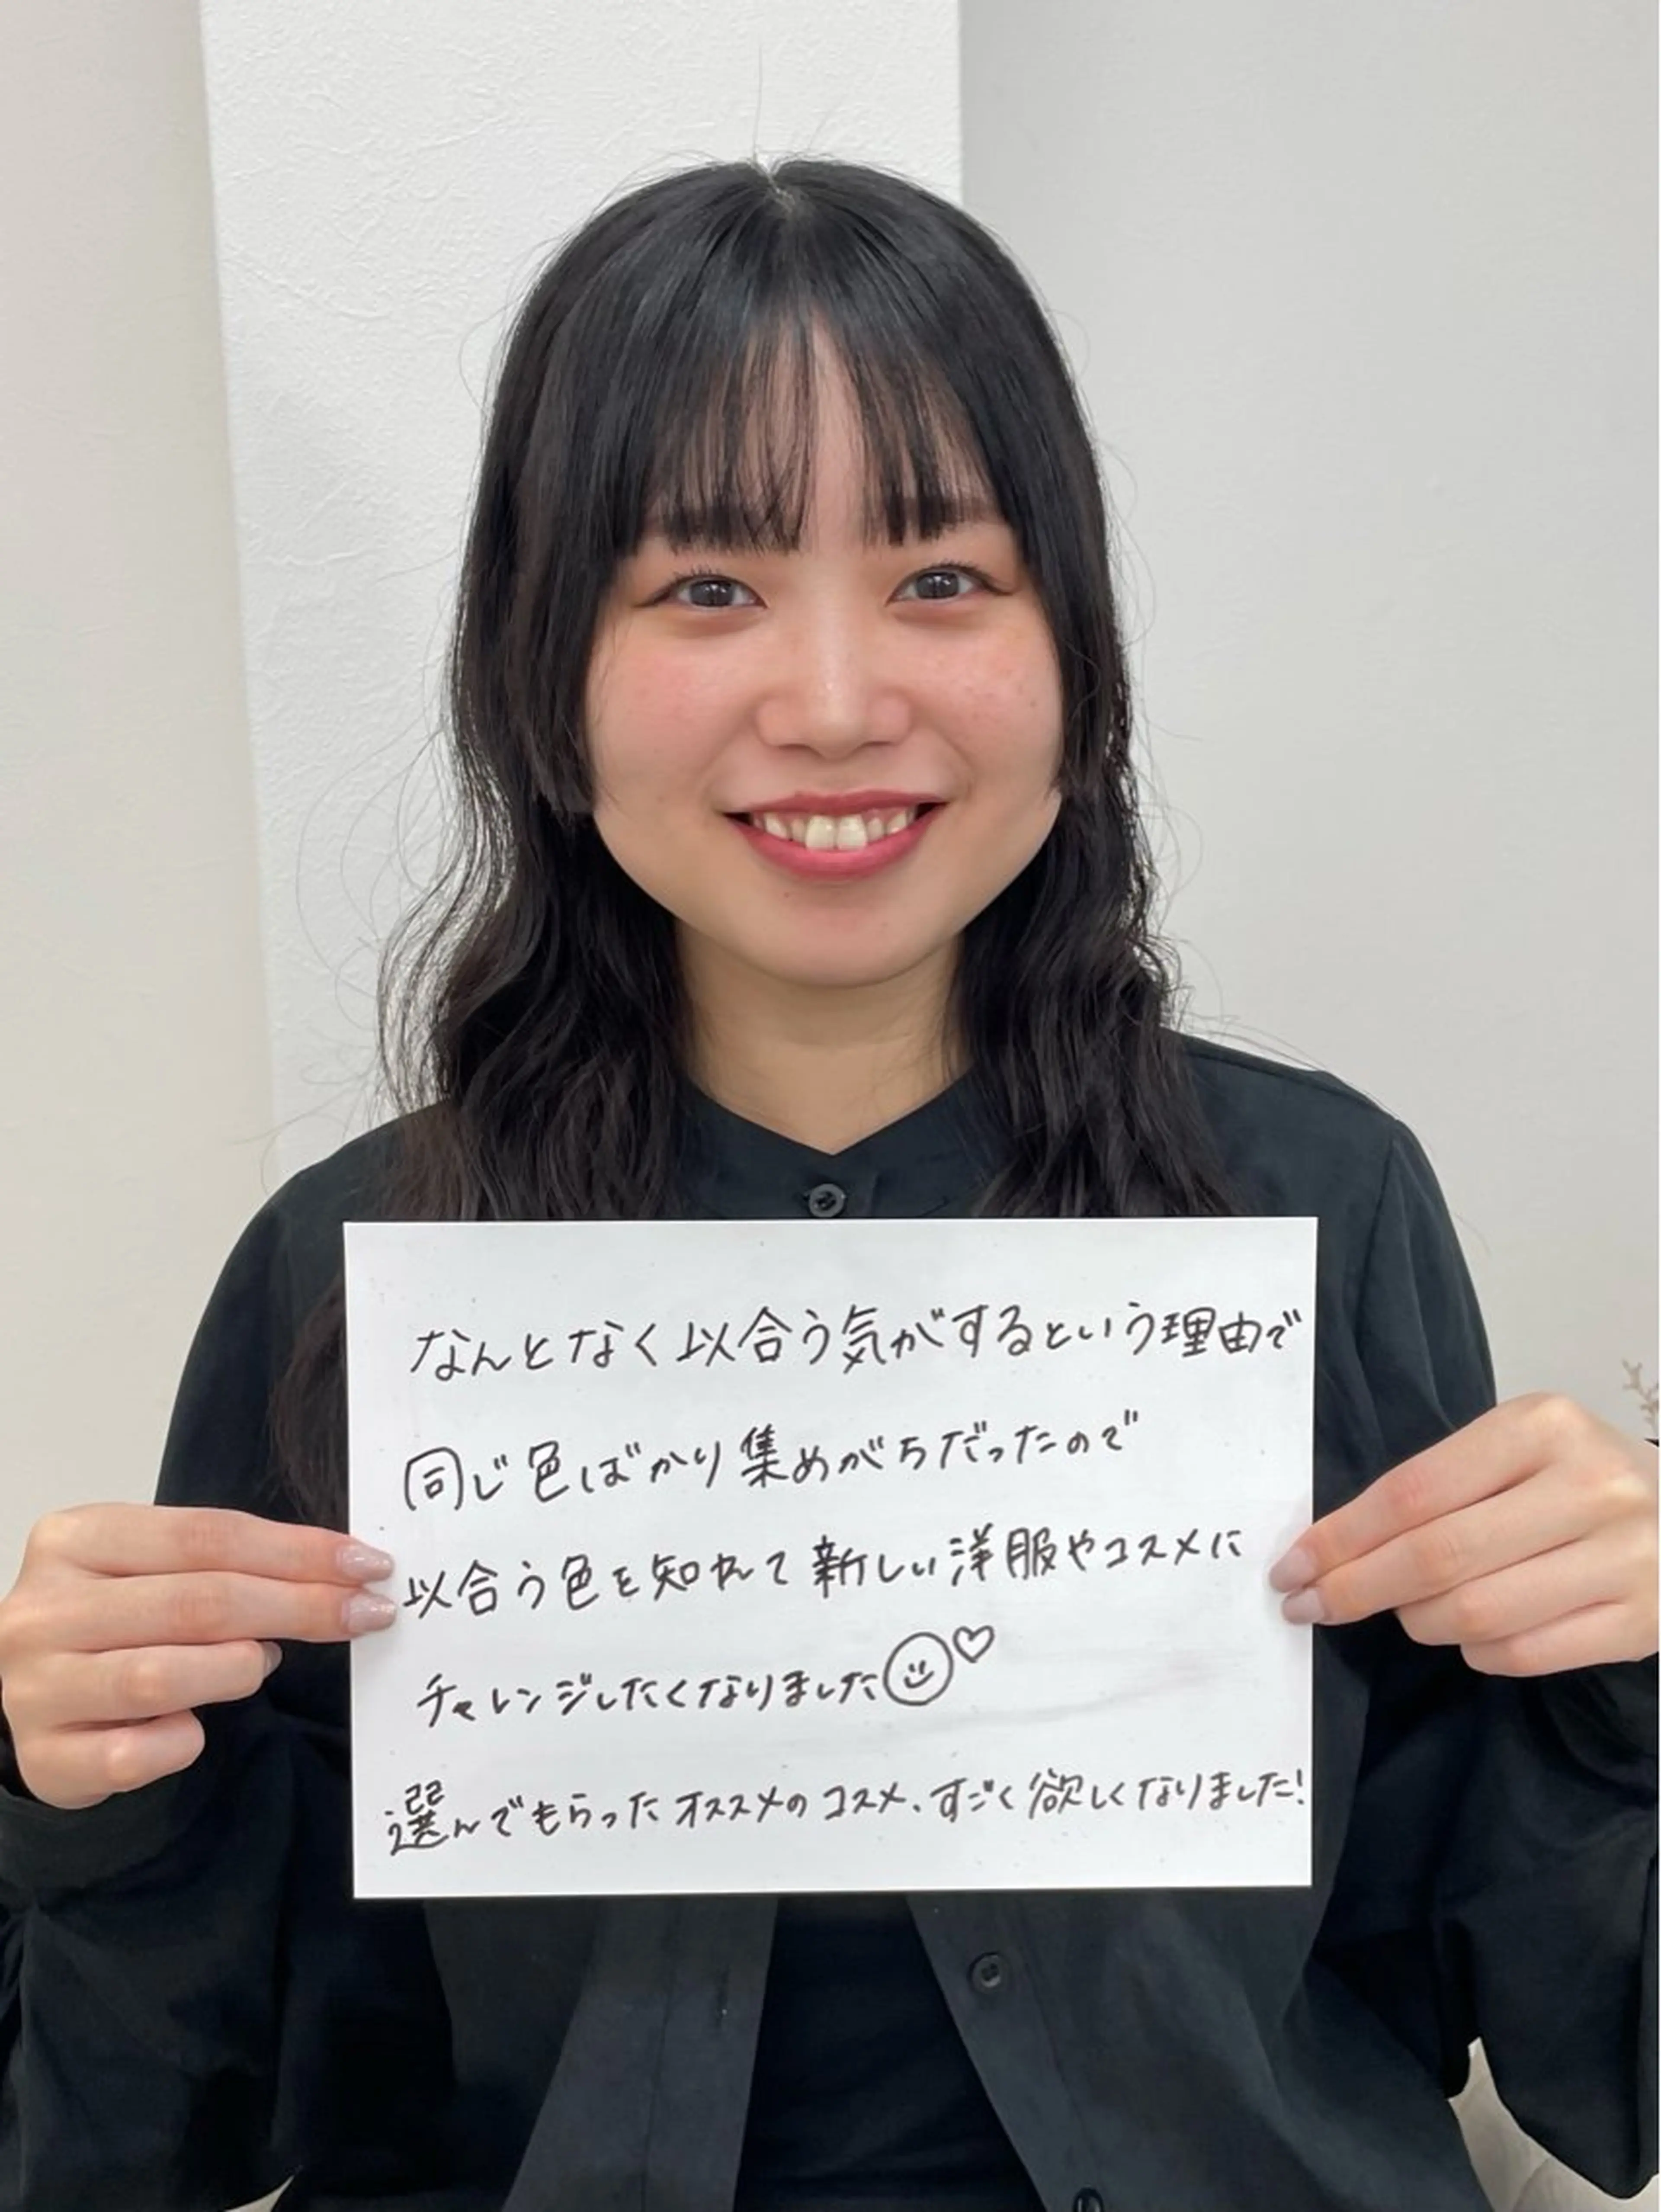 なんとなく以合う気がするという理由で
同じ色ばかり集めがちだったので
以合う色を知れて新しい洋服やコスメに
チャレンジしたくなりました
選んでもらったオススメのコスメ、すごく欲しくなりました!